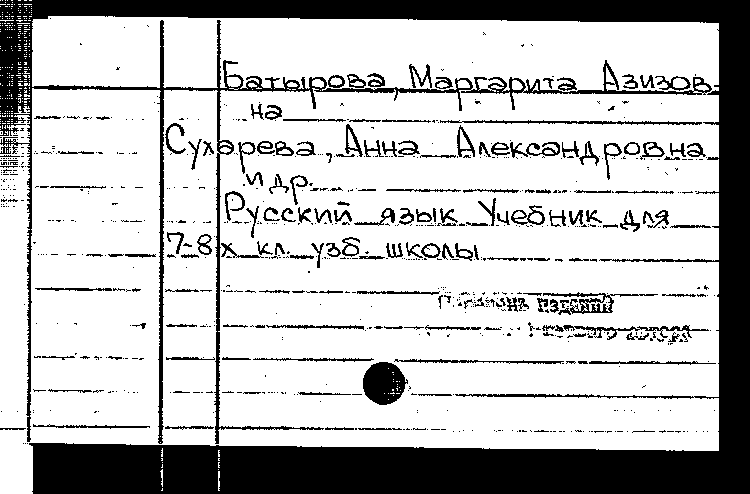 Батырова, Маргарита Азизов-
на
Сухарева, Анна Александровна
и др.
Русский язык Учебник для
7-8х кл. узб. школы
изданий
автора